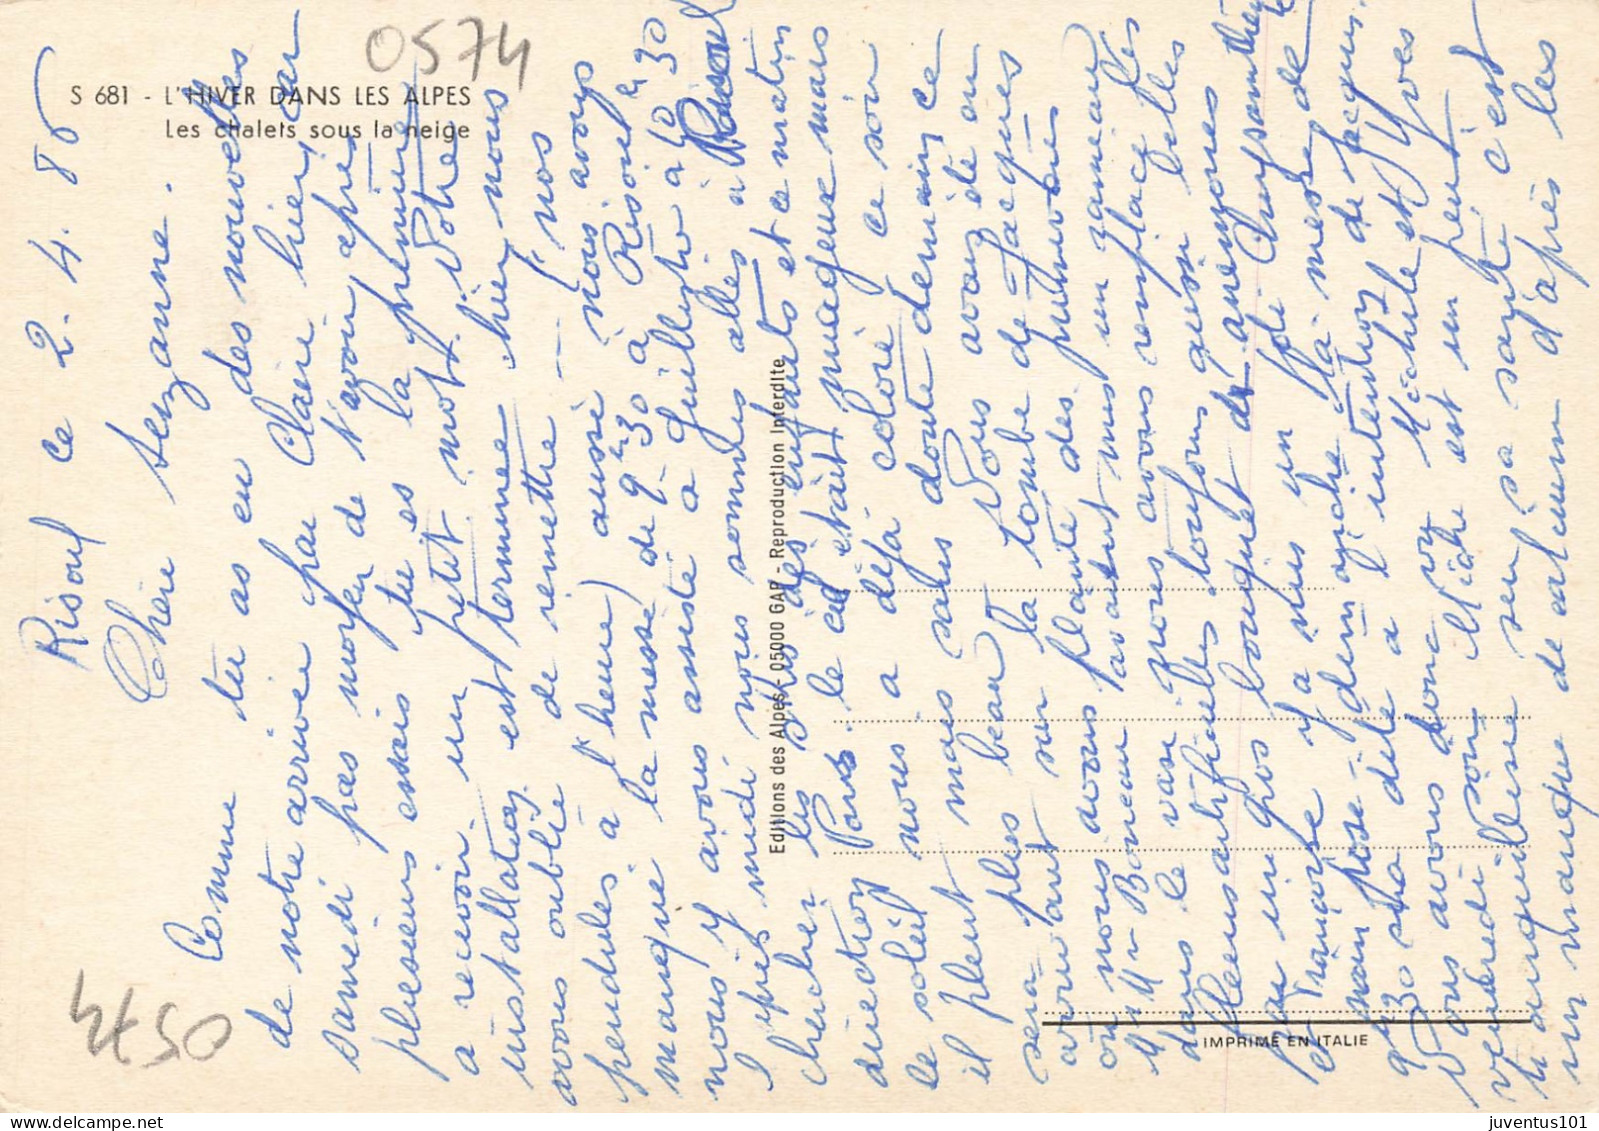 0574
S 681 - L'HIVER DANS LES ALPES
Les chalets sous la neige
Editions des Alpes - 05000 GAP - Reproduction Interdite
IMPRIMÉ EN ITALIE
4€50
0574
Risoul ce 2. 4. 86
Chère Suzanne.
Comme tu as eu des nouvelles
de notre arrivée par Claire hier car
samedi pas moyen de t'avoir après
plusieurs essais tu es la première
à recevoir un petit mot. Notre
installation est terminée hier nous
avons oublié de remettre nos
pendules à l'heure) aussi nous avons
manqué la messe) de 9h30 à Risoul
nous y avons assisté à Guillestre à 10h30
l'après midi nous sommes allés à Risoul
chercher les skis des enfants et ce matin
direction Vars. le ciel était nuageux mais
le soleil nous a déjà coloré ce soir
il pleut mais sans doute demain ce
sera plus beau. Nous avons été en
arrivant sur la tombe de Jacques
où nous avons planté des primevères
et Mr Bonneau avait mis un rameau
dans le vase nous avons remplacé les
fleurs artificielles toujours aussi belles
par un gros bouquet d'anémones
et Françoise y a mis un joli chrysanthème
mon pose demain dimanche la messe de
9h30 sera dite à l'intention de Jacques.
Nous avons donc vu Michèle et Yves
vendredi soir Miche est un peu
tranquillisée sur sa santé c'est
un manque de calcium d'après les